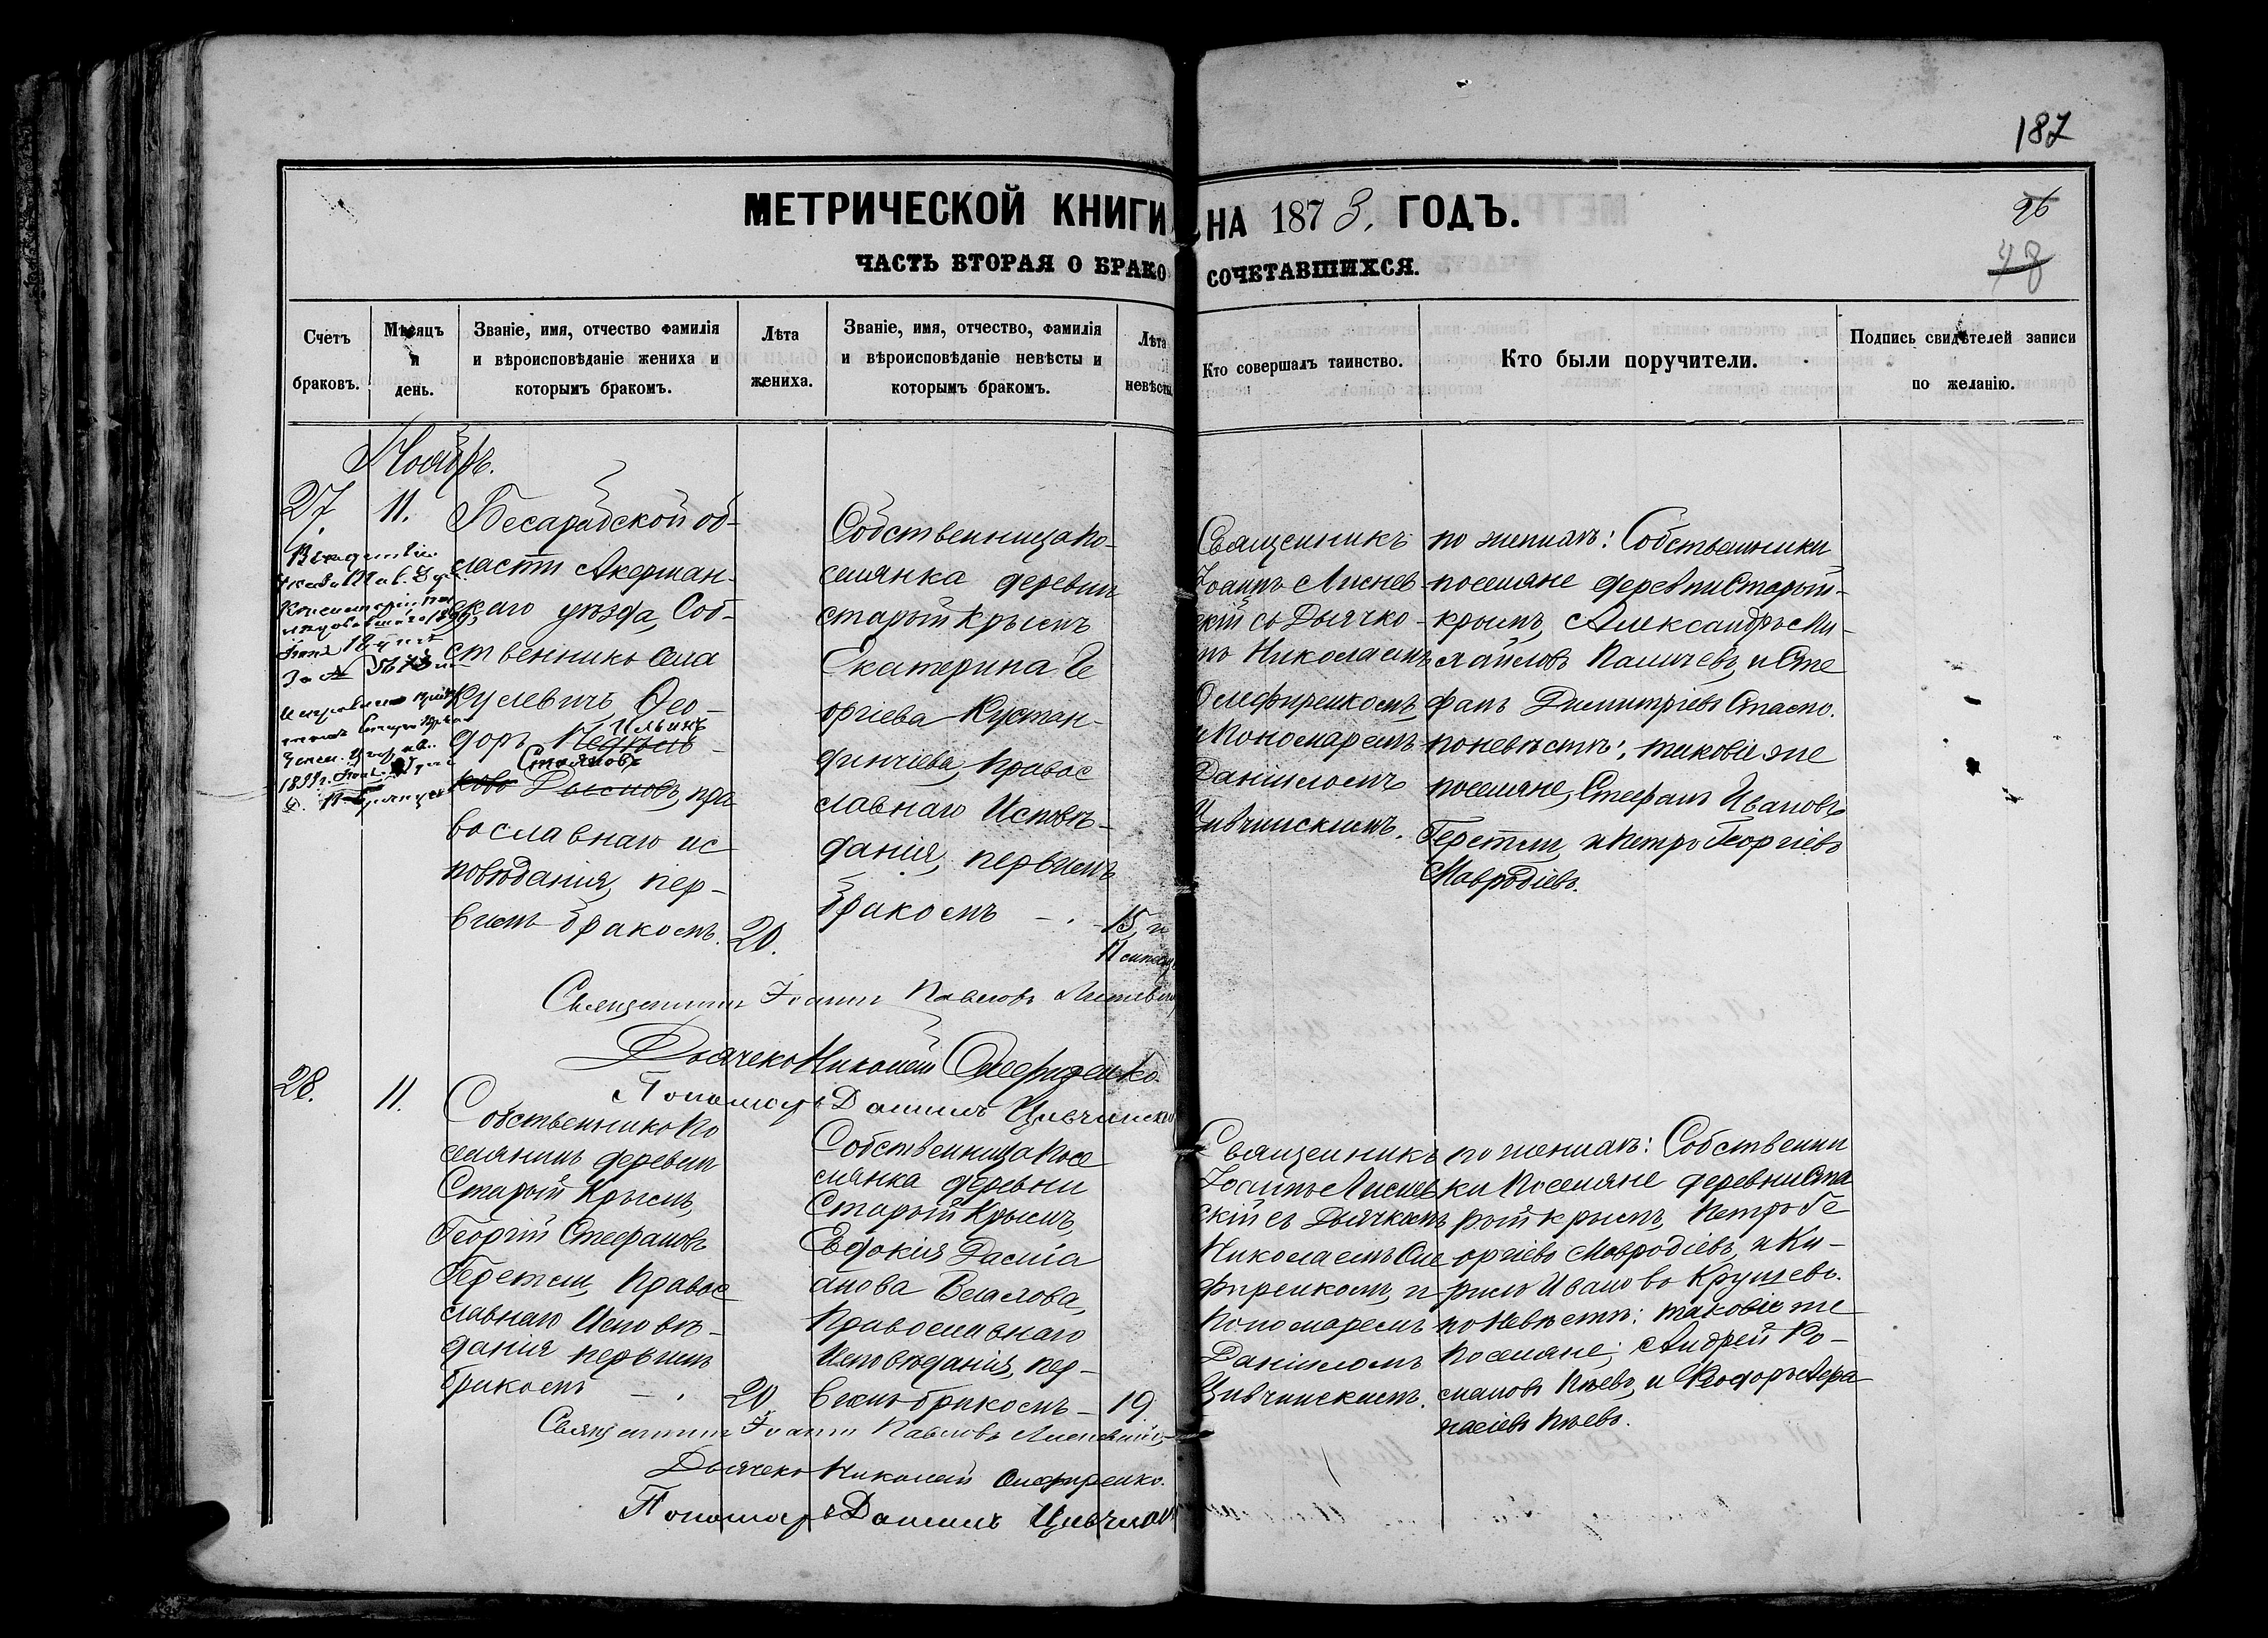 187
МЕТРИЧЕСКОЙ КНИГИ НА 1873. ГОДЪ.
96
48
ЧАСТЬ ВТОРАЯ О БРАКОСОЧЕТАВШИХСЯ.
Счетъ браковъ.
Мѣсяцъ и день.
Званіе, имя, отчество фамилія и вѣроисповѣданіе жениха и которымъ бракомъ.
Лѣта жениха.
Званіе, имя, отчество, фамилія и вѣроисповѣданіе невѣсты и которымъ бракомъ.
Лѣта невѣсты
Кто совершалъ таинство.
Кто были поручители.
Подпись свидѣтелей записи по желанію.
Ноябрь.
27.
11.
Бесарабской об-
ласти Акерман-
скаго уѣзда, Соб-
ственникъ села
Кулевичъ, Ѳео-
доръ
Ильинъ
Стояновъ
пра
вославнаго ис
повѣданія, пер-
вымъ бракомъ.
20.
Собственница по-
селянка деревни
старый Крымъ
Екатерина Ге
оргіева Кустан-
динчіева, Правос
славнаго Исповѣ-
данія, первымъ
бракомъ
15, и
Священникъ
Іоаннъ Лиснев-
скій съ Дьячко-
мъ Николаемъ
Олефиренкомъ
и Пономаремъ
Даніиломъ
Цивчинскимъ.
по жениху: Собственники
поселяне деревни Старый-
крымъ, Александръ Ми-
хайловъ Паничевъ, и Сте
фанъ Димитріевъ Спасто.
по невѣстѣ: таковіе же
поселяне, Стефанъ Ивановъ
Герстли, и Петръ Георгіевъ
Мавродіевъ.
Священникъ Іоаннъ Павловъ Лисневскій
Дьячекъ Николай Олефиренко.
Пономарь Даніилъ Цивчинскі
28.
11.
Собственникъ По
селянинъ деревни
Старый Крымъ,
Георгій Стефановъ
Герстли, Правос
славнаго Исповѣ-
данія первымъ
бракомъ
20
Собственница Посе
лянка деревни
Старый Крымъ,
Евдокія Даміа
нова Вешлова,
Православнаго
Исповѣданія, пер-
вымъ бракомъ
19.
Священникъ
Іоаннъ Лиснев
скій съ Дьячкомъ
Николаемъ Оле
фиренкомъ, и
Пономаремъ
Даніиломъ
Цивчинскимъ.
по жениху: Собственни
ки Поселяне деревни Ста
рой крымъ, Петръ Ге
оргіевъ Мавродіевъ, и Ки-
рилъ Ивановъ Крушевъ.
по Невѣстѣ: таковіе же
Поселяне; Андрей Ро-
мановъ Пѣевъ, и Ѳеодоръ Аѳа
насіевъ Пѣевъ.
Священникъ Іоаннъ Павловъ Лисневскій
Дьячекъ Николай Олефиренко.
Пономарь Даніилъ Цивчин